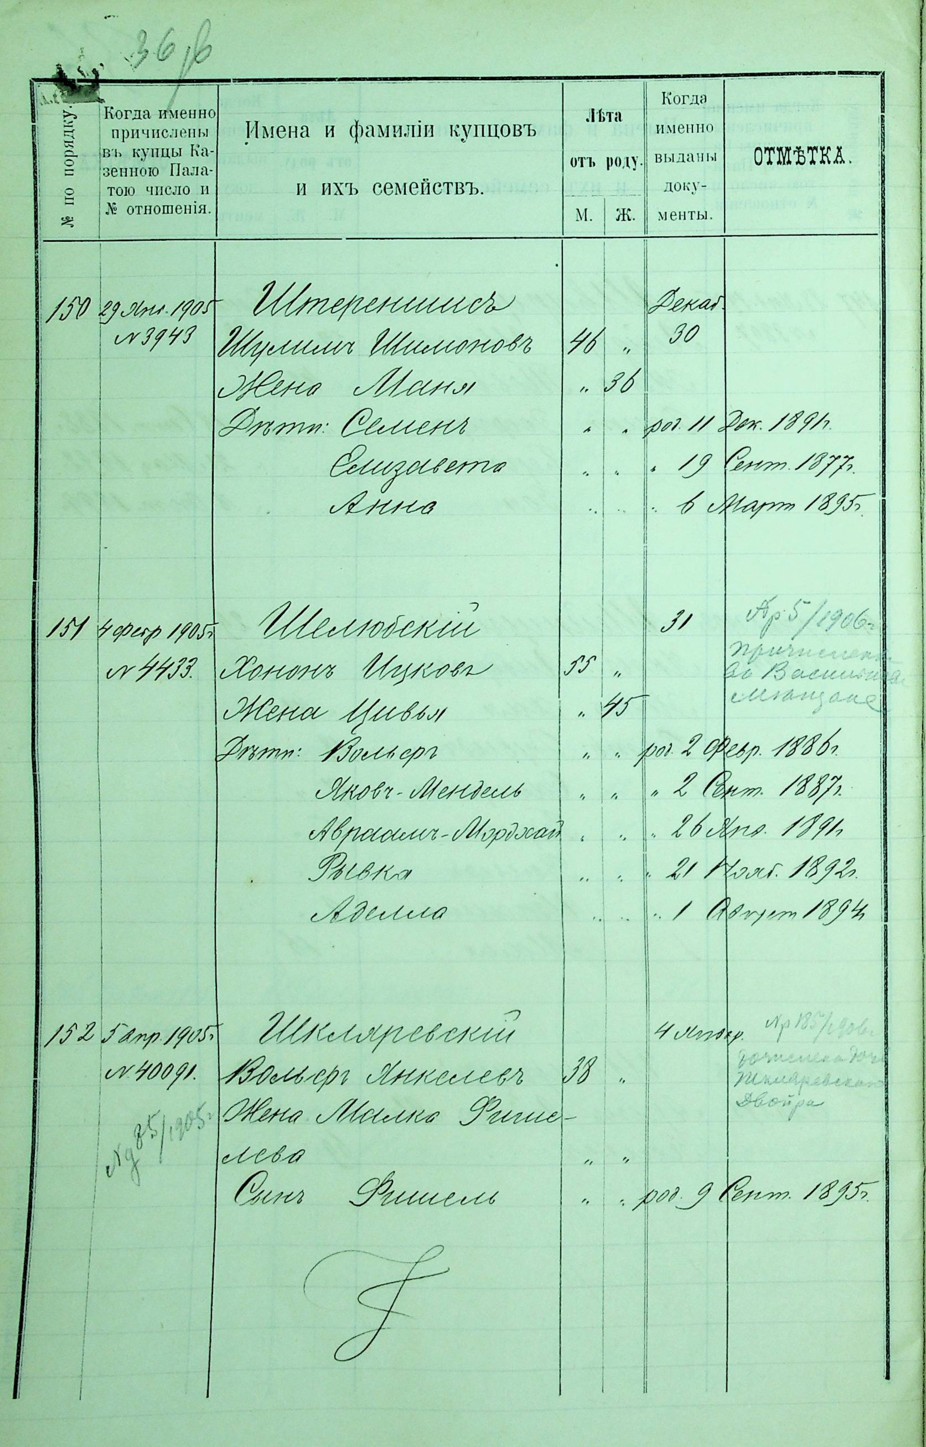 36 об
№ по порядку.
Когда именно
причислены
въ купцы Ка-
зенною Пала-
тою число и
№ отношенія.
Имена и фамиліи купцовъ
и ихъ семействъ.
Лѣта
отъ роду.
М. Ж.
Когда
именно
выданы
доку-
менты.
ОТМѢТКА.
150 29 Янв. 1905 Штереншисъ Декаб.
№ 3943 Шулимъ Шимоновъ 46 „ 30
Жена Маня „ 36
Дѣти: Семенъ „ „ род. 11 Дек. 1891 г.
Елизавета „ „ „ 19 Сент. 1877 г.
Анна „ „ „ 6 Март 1895 г.
151 4 Февр 1905 г. Шелюбскій 31 Ар 5/1906 г.
№ 4433. Хононъ Ицковъ 55 „ причислен
Жена Цивья „ 45 мѣщане
Дѣти: Вольфъ „ „ род. 2 Февр. 1886 г.
Яковъ-Мендель „ „ „ 2 Сент. 1887 г.
Авраамъ-Мордхай „ „ „ 26 Янв. 1891 г.
Рывка „ „ „ 21 Нояб. 1892 г.
Аделла „ „ „ 1 Август 1894 г.
152 5 Апр. 1905 г. Шкляревскій 4 Январ. Ар 185/1906 г.
№ 40091. Вольфъ Янкелевъ 38 „ дочислена дочь
Шкляревскаго
Жена Малка Фише- Двойра
85/1905 г.
лева „ „
Сынъ Фишель „ „ род. 9 Сент. 1895 г.